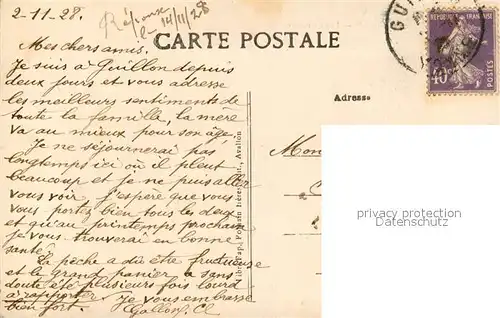 2-11-28.
Réponse
le 14/11/28
CARTE POSTALE
Mes chers amis.
Je suis à Guillon depuis
deux jours et vous adresse
les meilleurs sentiments de
toute la famille, la mère
va au mieux pour son âge.
Je ne séjournerai pas
longtemps ici où il pleut
beaucoup et je ne puis aller
vous voir. J'espère que vous
vous portez bien tous les deux
et qu'au printemps prochain
je vous trouverai en bonne
santé.
La pêche a dû être fructueuse
et le grand panier a sans
doute été plusieurs fois lourd
à rapporter. Je vous embrasse
bien fort.
Adresse
Mon
privacy protection
Datenschutz
POSTES
40